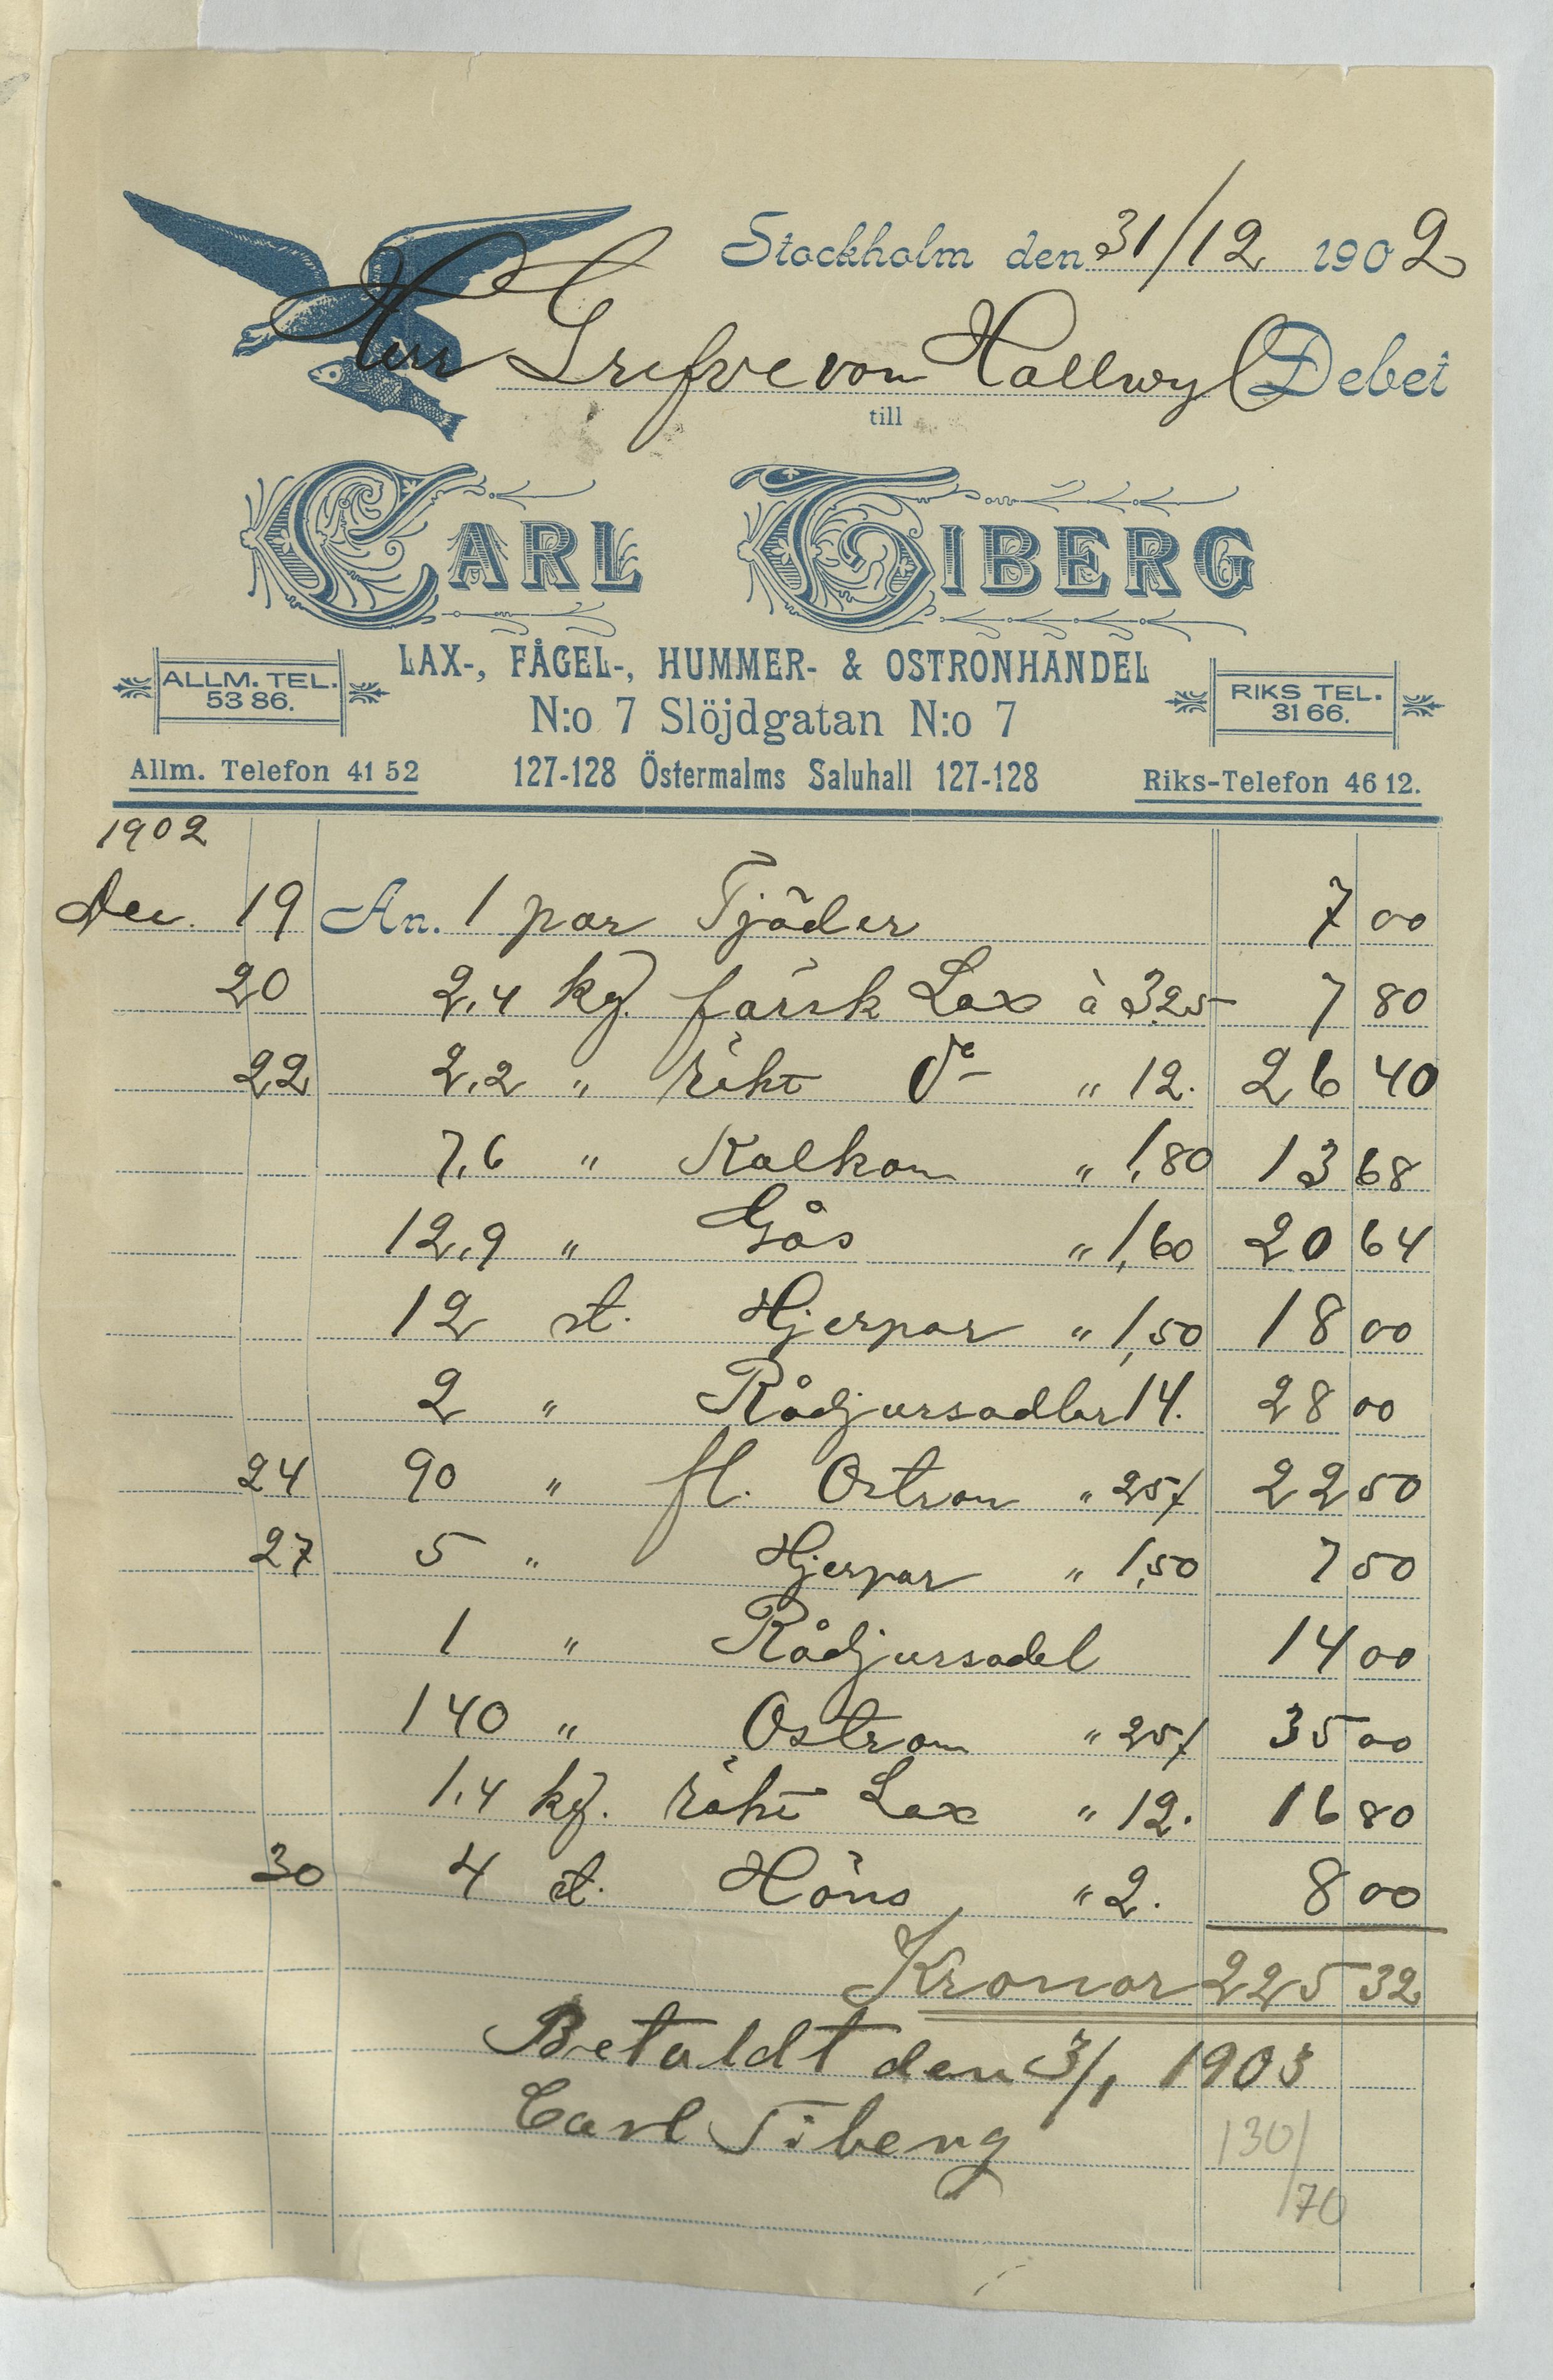 Stockholm den 31/12 1902
Herr Grefve von Hallwyl Debet
till
CARL TIBERG
LAX-, FÅGEL-, HUMMER- & OSTRONHANDEL
ALLM. TEL. 53 86.
N:o 7 Slöjdgatan N:o 7
RIKS TEL. 31 66.
Allm. Telefon 41 52
127-128 Östermalms Saluhall 127-128
Riks-Telefon 46 12.
1902
Dec. 19 An. 1 par Tjäder 7 00
20 2,4 kg. färsk Lax à 3,25 7 80
22 2,2 " rökt do " 12. 26 40
7,6 " Kalkon " 1,80 13 68
12,9 " Gås " 1,60 20 64
12 st. Hjerpar " 1,50 18 00
2 " Rådjursadlar 14. 28 00
24 90 " fl. Ostron " 25/ 22 50
27 5 " Hjerpar " 1,50 7 50
1 " Rådjursadel 14 00
140 " Ostron " 25/ 35 00
1,4 kg. rökt Lax " 12. 16 80
30 4 st. Höns " 2. 8 00
Kronor 225 32
Betaldt den 3/1 1903
Carl Tiberg
130/
/70